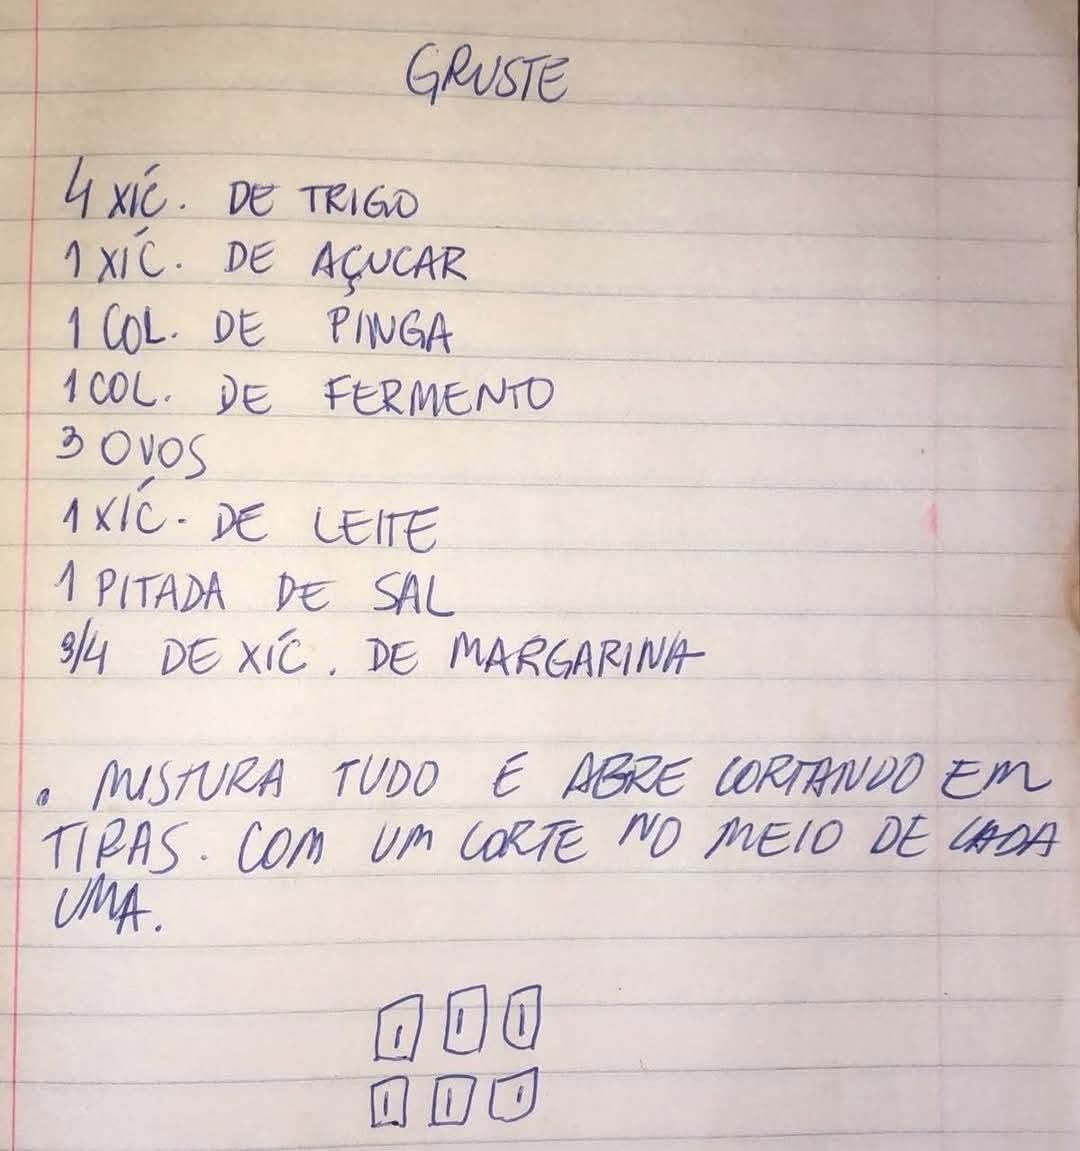 GRUSTE
4 XÍC. DE TRIGO
1 XÍC. DE AÇUCAR
1 COL. DE PINGA
1 COL. DE FERMENTO
3 OVOS
1 XÍC. DE LEITE
1 PITADA DE SAL
3/4 DE XÍC. DE MARGARINA
. MISTURA TUDO E ABRE CORTANDO EM
TIRAS. COM UM CORTE NO MEIO DE CADA
UMA.